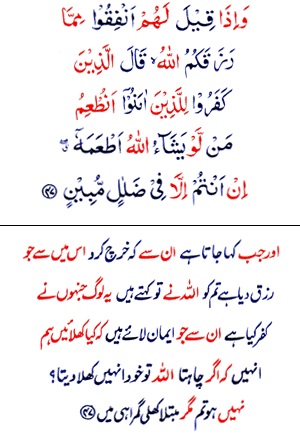 وَاِذَا قِيْلَ لَهُمْ اَنْفِقُوْا مِمَّا
رَزَقَكُمُ اللّٰهُ ۙ قَالَ الَّذِيْنَ
كَفَرُوْا لِلَّذِيْنَ اٰمَنُوْۤا اَنُطْعِمُ
مَنْ لَّوْ يَشَآءُ اللّٰهُ اَطْعَمَهٗۤ ۖ
اِنْ اَنْتُمْ اِلَّا فِىْ ضَلٰلٍ مُّبِيْنٍ ﴿۴۷﴾
اور جب کہا جاتا ہے ان سے کہ خرچ کرو اس میں سے جو
رزق دیا ہے تم کو اللہ نے تو کہتے ہیں یہ لوگ جنہوں نے
کفر کیا ہے ان سے جو ایمان لائے ہیں کہ کیا کھلائیں ہم
انہیں کہ اگر چاہتا اللہ تو خود انہیں کھلا دیتا؟
نہیں ہو تم مگر مبتلا کھلی گمراہی میں ﴿۴۷﴾